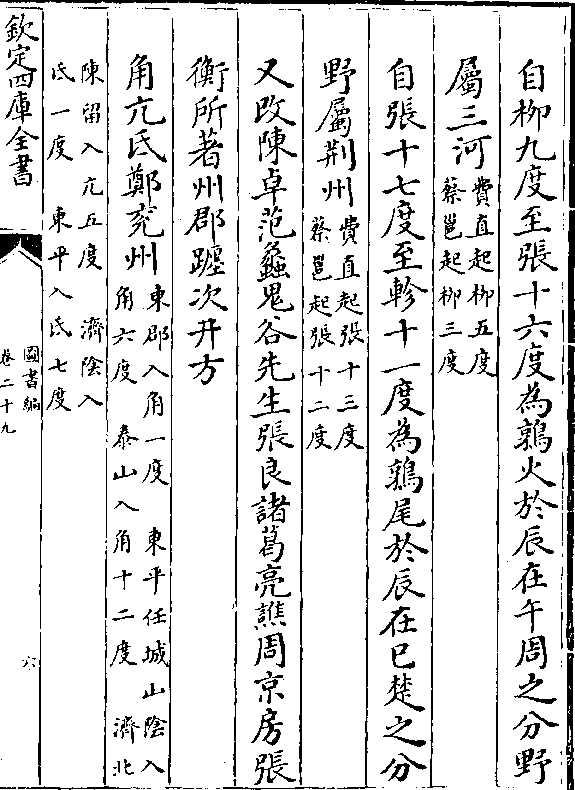 自柳九度至張十六度為鶉火於辰在午周之分野
屬三河費直起柳五度
蔡邕起柳三度
自張十七度至軫十一度為鶉尾於辰在巳楚之分
野屬荆州費直起張十三度
蔡邕起張十二度
又改陳卓范蠡鬼谷先生張良諸葛亮譙周京房張
衡所著州郡躔次幷方
角亢氐鄭兖州東郡入角一度 東平任城山陰入
角六度 泰山入角十二度 濟北
陳留入亢五度 濟陰入
氐一度 東平入氐七度
欽定四庫全書
圖書編
卷二十九
六